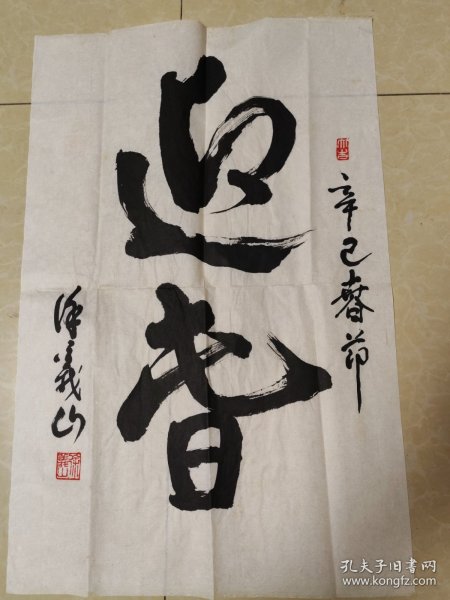 辛巳春节
迎春
徐义山
孔夫子旧书网
www.kongfz.com